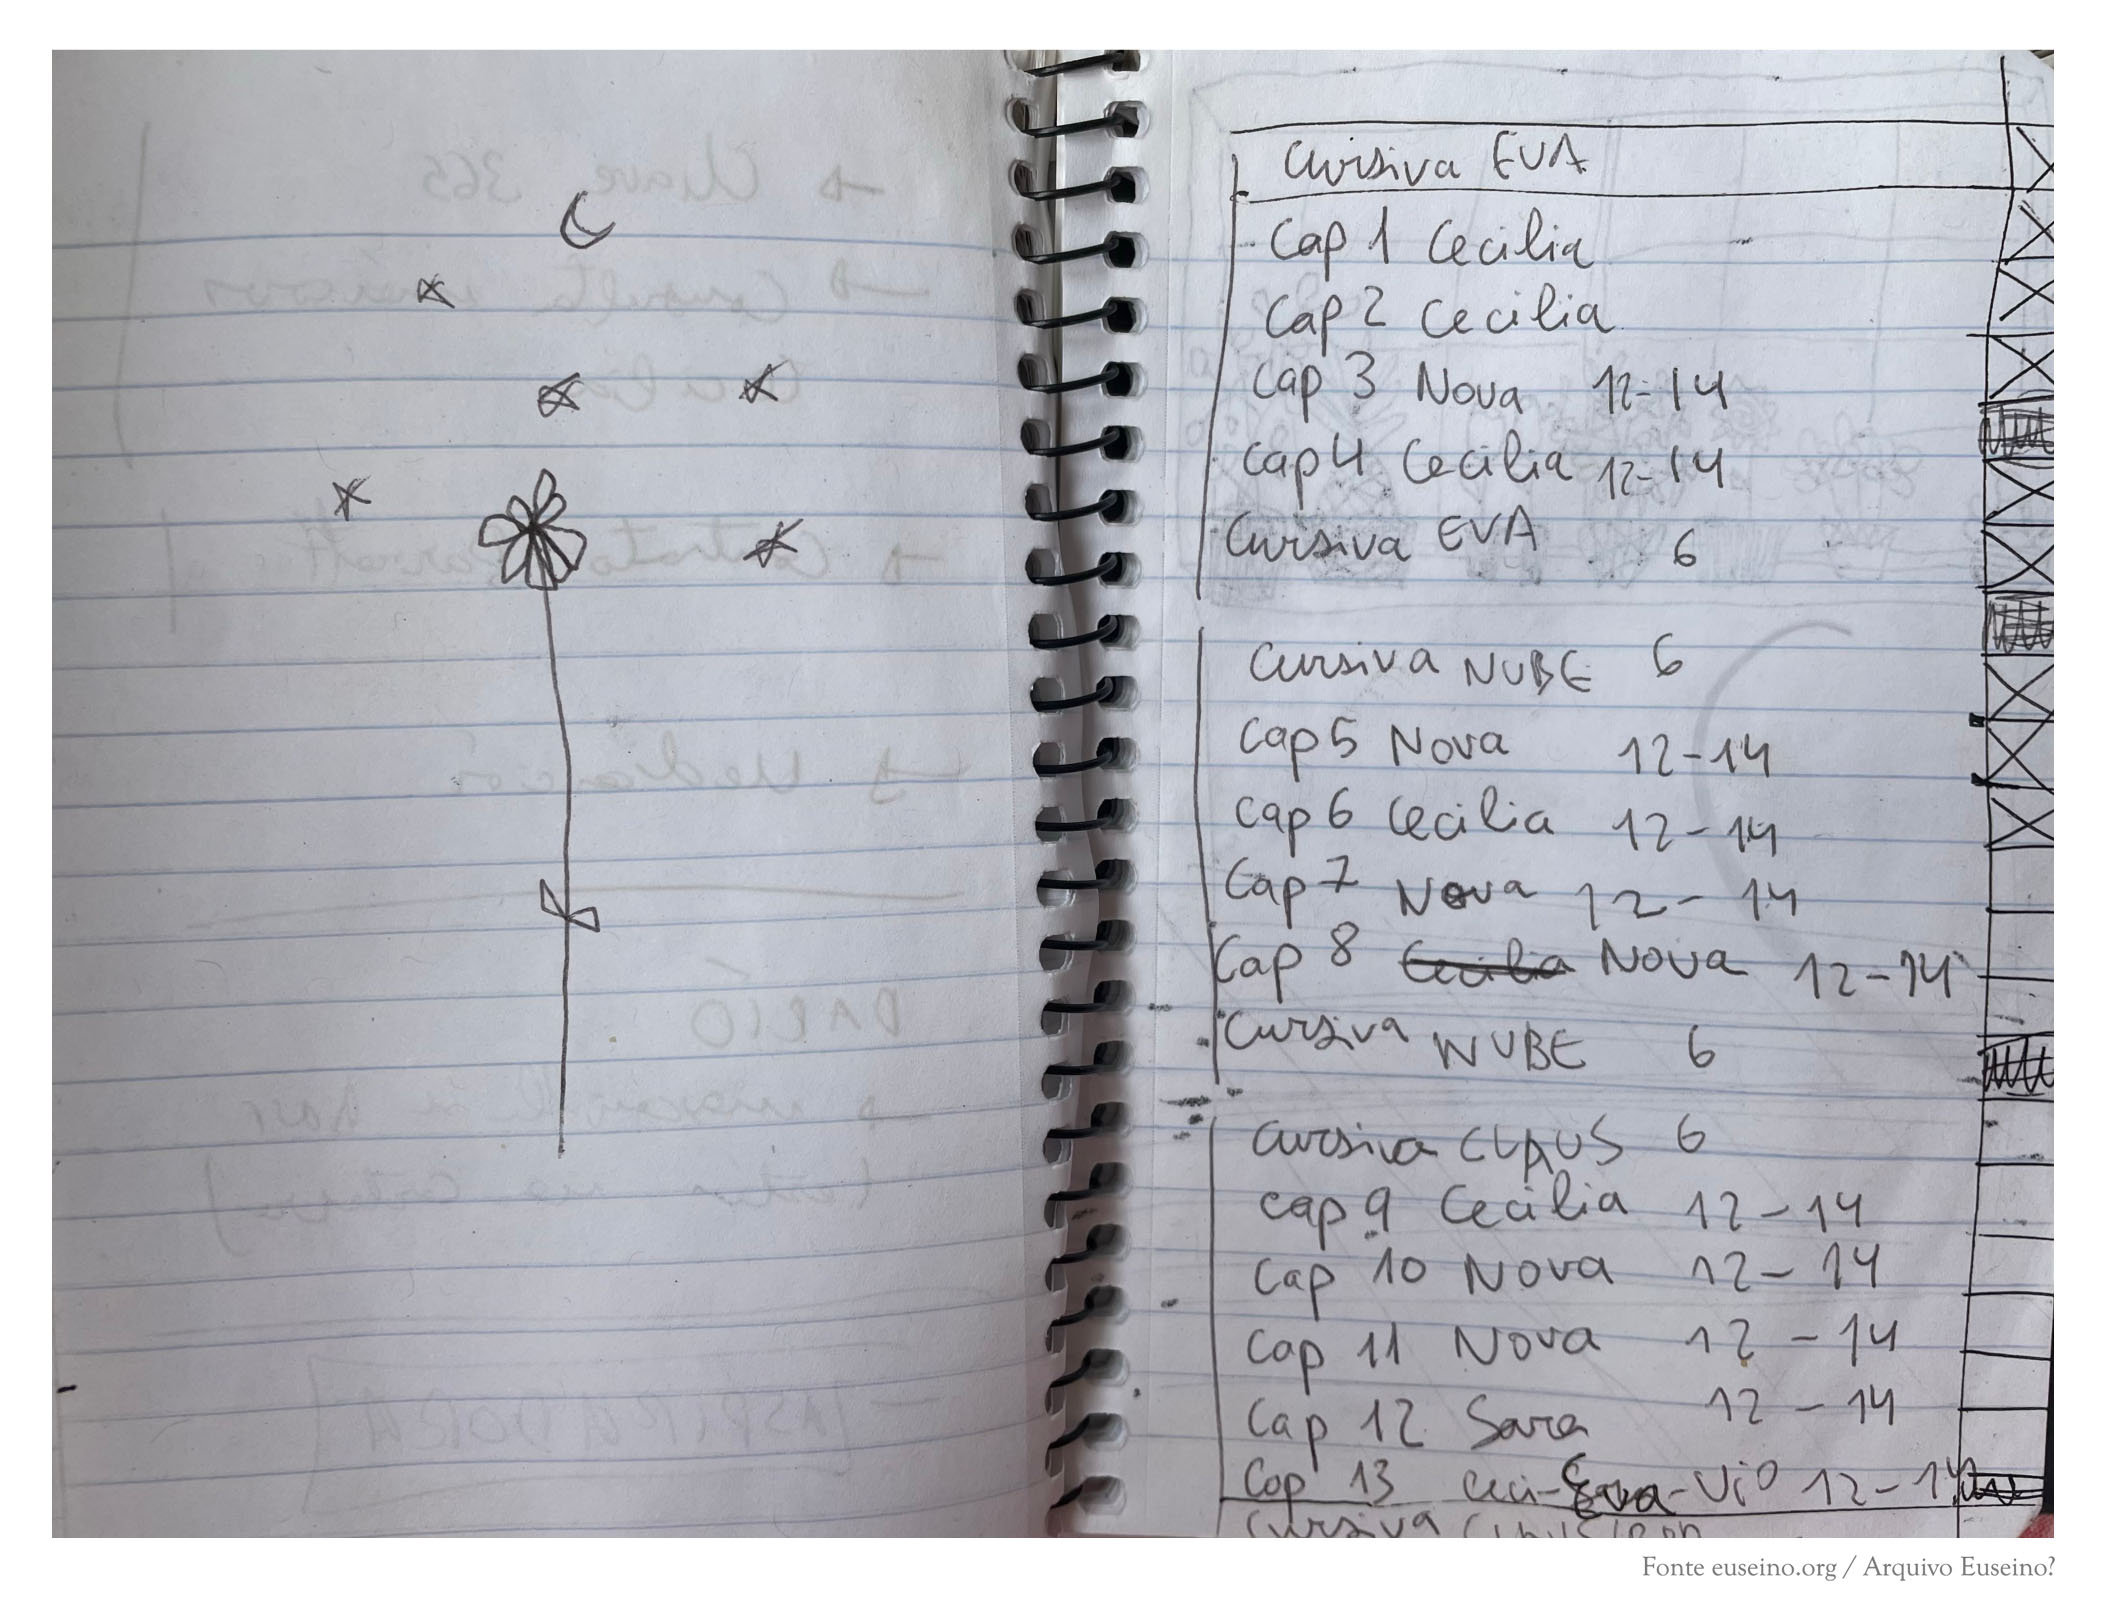 Cursiva EVA
Cap 1 Cecilia
Cap 2 Cecilia
Cap 3 Nova 12-14
Cap 4 Cecilia 12-14
Cursiva EVA 6
Cursiva NUBE 6
Cap 5 Nova 12-14
Cap 6 Cecilia 12-14
Cap 7 Nova 12-14
Cap 8 Cecilia Nova 12-14
Cursiva NUBE 6
Cursiva CLPUS 6
Cap 9 Cecilia 12-14
Cap 10 Nova 12-14
Cap 11 Nova 12-14
Cap 12 Sara 12-14
Cap 13 Ceci-Eva-Vio 12-14
Cursiva
Fonte euseino.org / Arquivo Euseino?